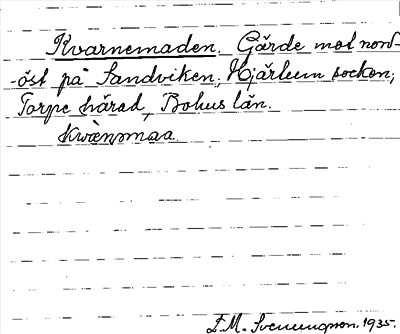 Kvarnemaden. Gärde mot nord-
-öst på Sandviken, Hjärtum socken,
Torpe härad, Bohus län.
Kwænsmaa.
1935.